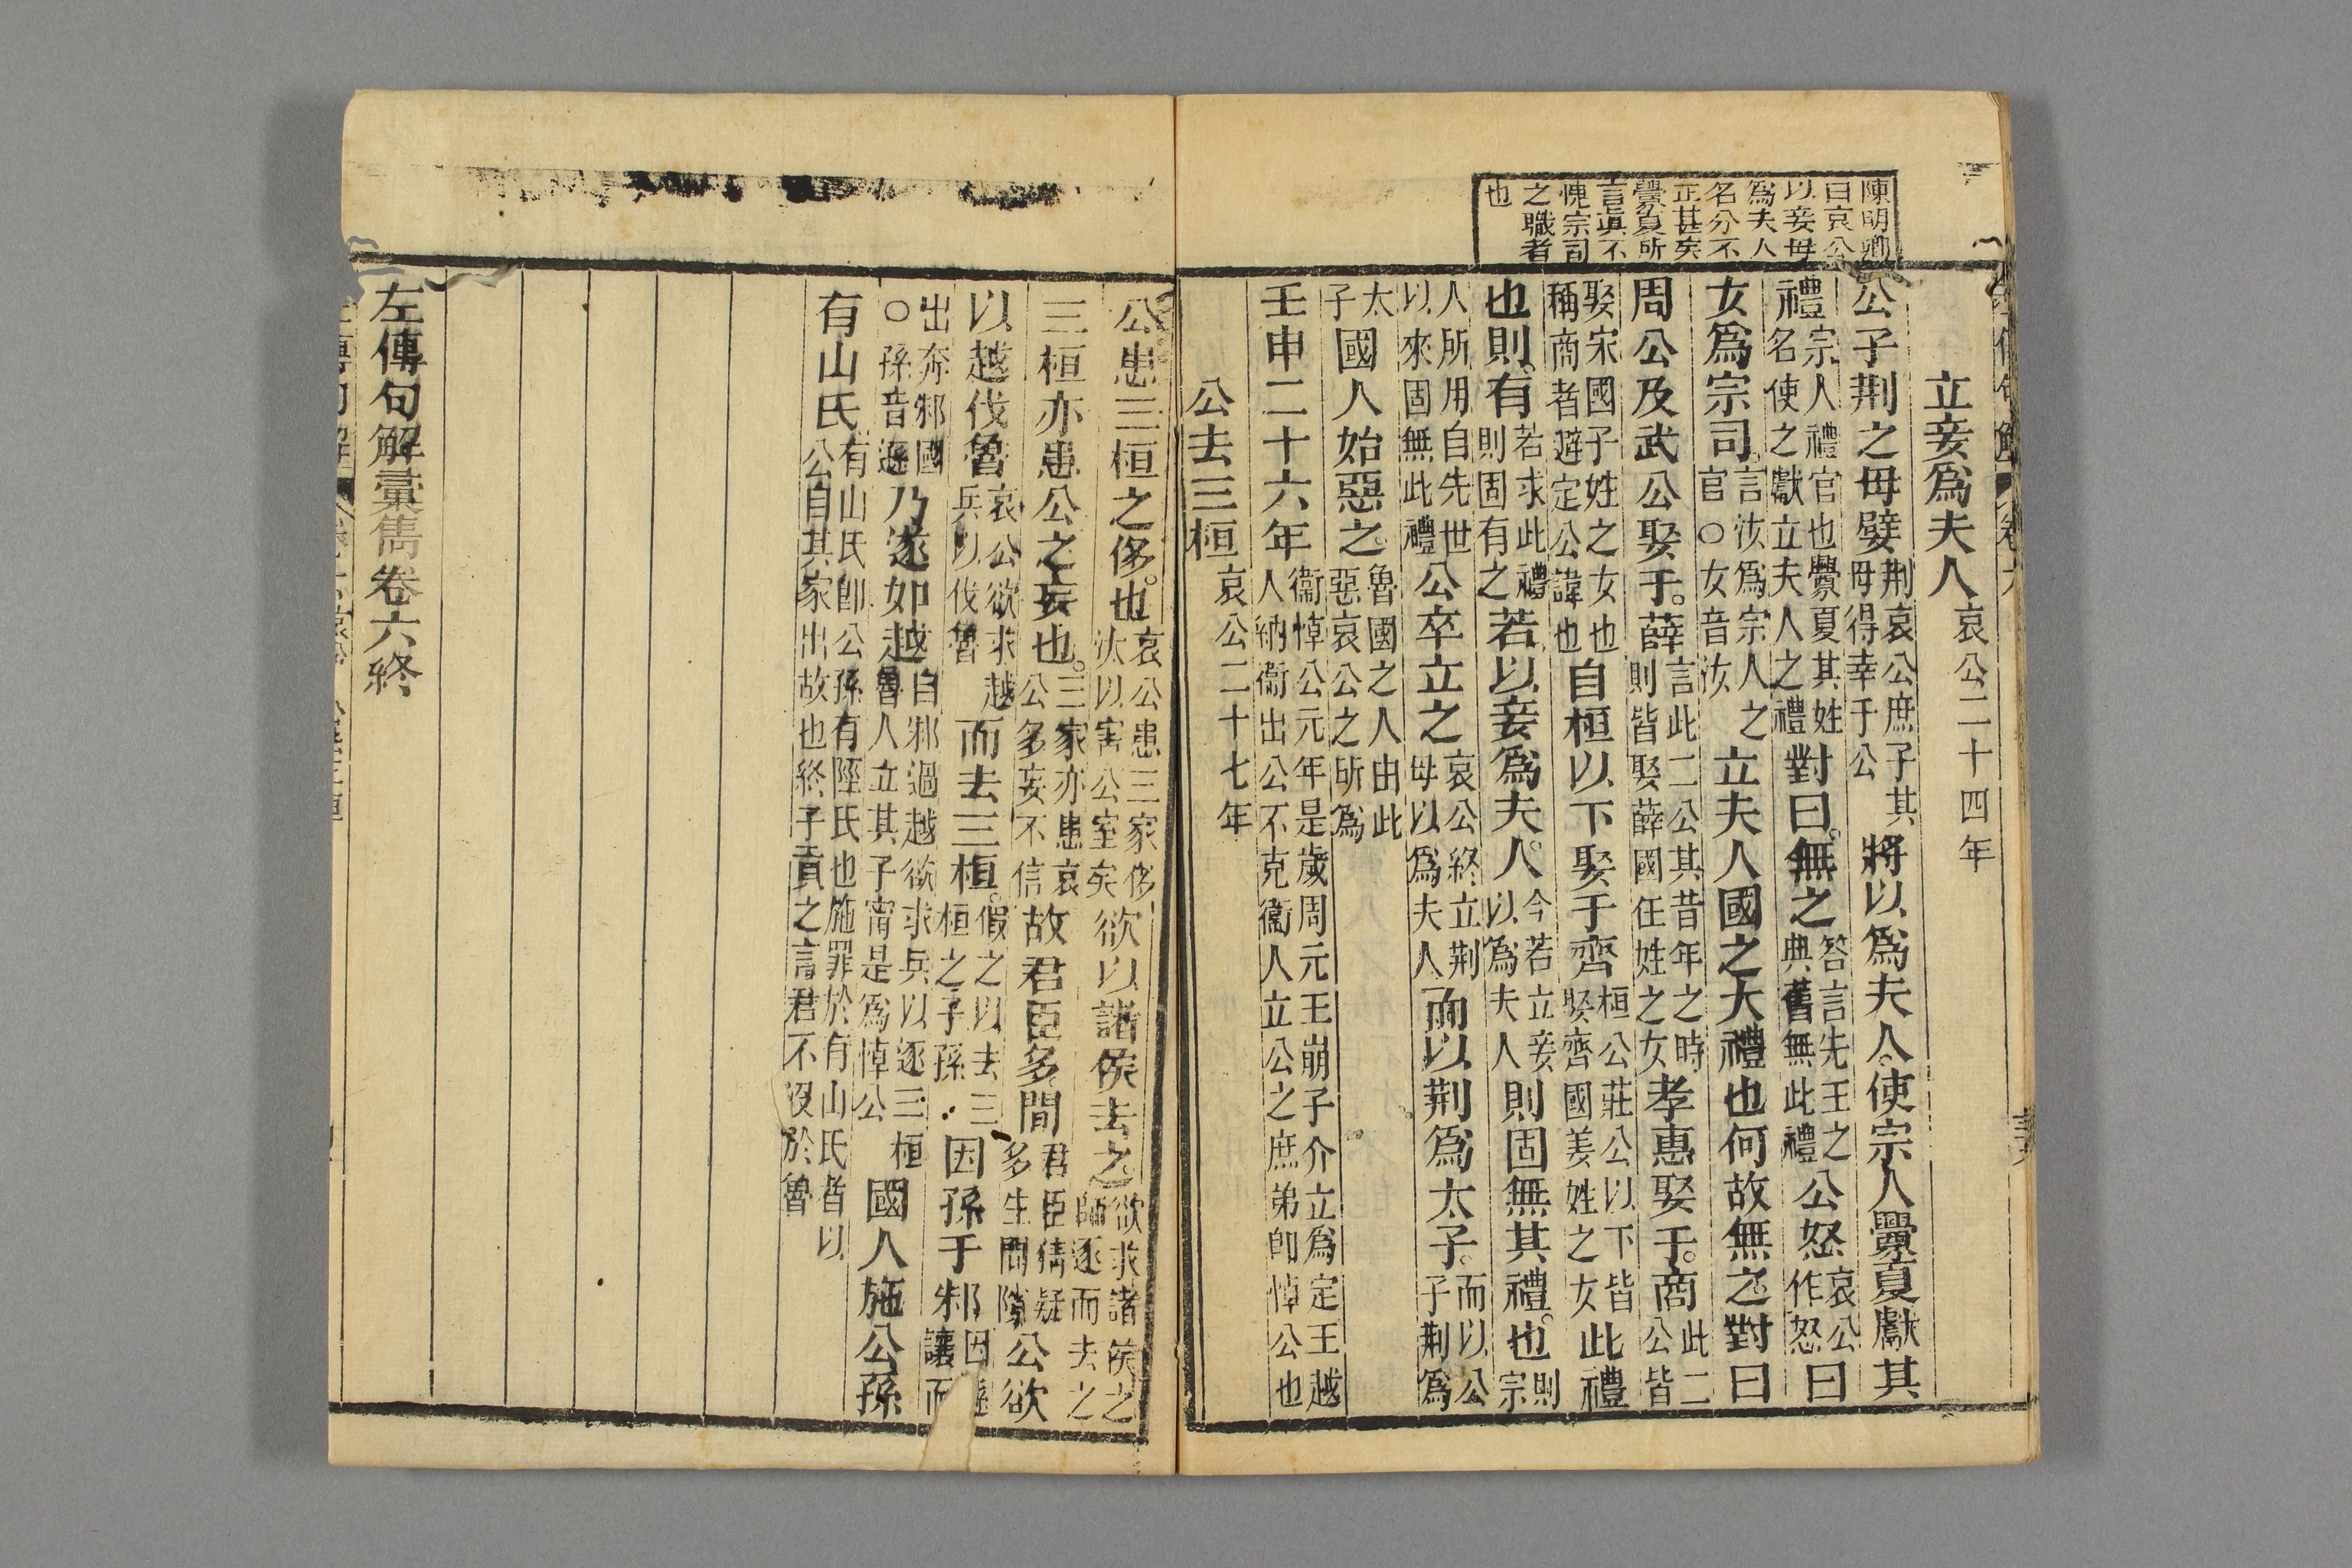 陳明卿
曰哀公
以妾母
爲夫人
名分不
正甚矣
釁夏所
言眞不
愧宗司
之職者
也
立妾爲夫人哀公二十四年
公子荆之母嬖荆哀公庶子其母得幸于公將以爲夫人使宗人釁夏獻其
禮宗人禮官也釁夏其姓名使之獻立夫人之禮對曰無之答言先王之典舊無此禮公怒哀公作怒曰
女爲宗司言汝爲宗人之官○女音汝立夫人國之大禮也何故無之對曰
周公及武公娶于薛言此二公其昔年之時則皆娶薛國任姓之女孝惠娶于商此二公皆
娶宋國子姓之女也稱商者避定公諱也自桓以下娶于齊桓公莊公以下皆娶齊國姜姓之女此禮
也則有若求此禮則固有之若以妾爲夫人今若立妾以爲夫人則固無其禮也則宗
人所用自先世以來固無此禮公卒立之哀公終立荆母以爲夫人而以荆爲太子而以公子荆爲
太子國人始惡之魯國之人由此惡哀公之所爲
壬申二十六年衞悼公元年是歲周元王崩子介立爲定王越人納衞出公不克衞人立公之庶弟卽悼公也
公去三桓哀公二十七年
公患三桓之侈也哀公患三家侈汰以害公室矣欲以諸侯去之欲求諸侯之師逐而去之
三桓亦患公之妄也三家亦患哀公多妄不信故君臣多間君臣猜疑多生間隙公欲
以越伐魯哀公欲求越兵以伐魯而去三桓假之以去三桓之子孫因孫于邾因讓而
出奔邾國○孫音遜乃遂如越自邾過越欲求兵以逐三桓魯人立其子甯是爲悼公國人施公孫
有山氏有山氏卽公孫有陘氏也施罪於有山氏者以公自其家出故也終子貢之言君不沒於魯
左傳句解彙雋卷六終